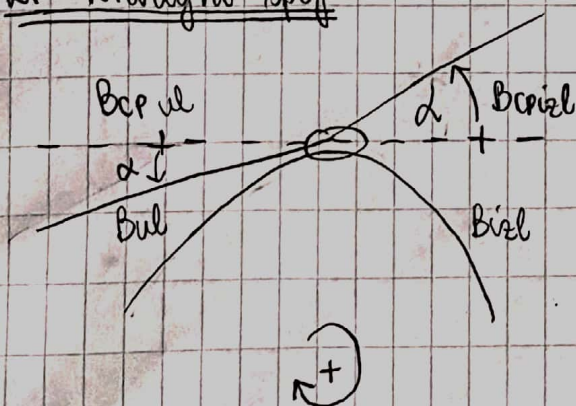 Bcp ul
α
Bcpizl
α
Bul
Bizl
+